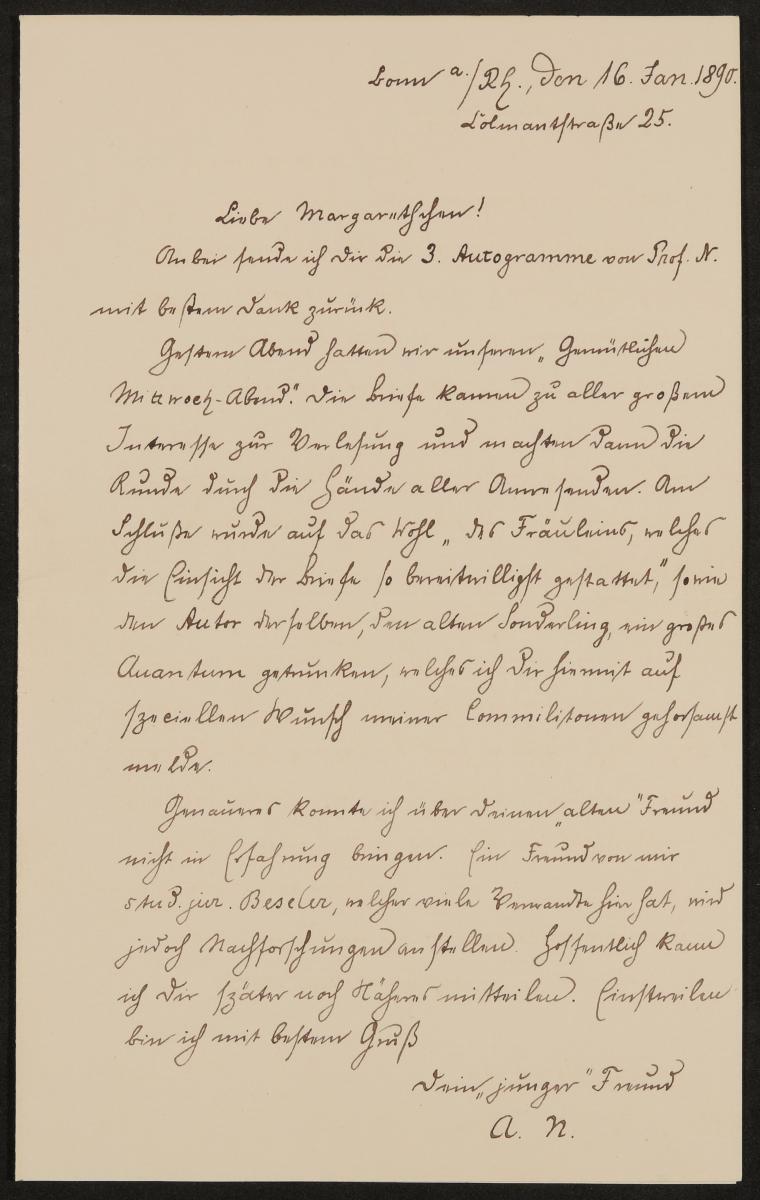 Bonn a./Rh., den 16. Jan. 1890.
Colmantstraße 25.
Liebe Margarethchen!
Anbei sende ich Dir die 3. Autogramme von Prof. N.
mit bestem Dank zurück.
Gestern Abend hatten wir unseren „Gemütlichen
Mittwoch-Abend“. Die Briefe kamen zu aller großem
Interesse zur Verlesung und machten dann die
Runde durch die Hände aller Anwesenden. Am
Schluße wurde auf das Wohl „des Fräuleins, welches
die Einsicht der Briefe so bereitwilligst gestattet“, sowie
den Autor derselben, den alten Sonderling, ein großes
Quantum getrunken, welches ich Dir hiermit auf
speciellen Wunsch meiner Commilitonen gehorsamst
melde.
Genaueres konnte ich über Deinen „alten“ Freund
nicht in Erfahrung bringen. Ein Freund von mir
stud. jur. Beseler, welcher viele Verwandte hier hat, wird
jedoch Nachforschungen anstellen. Hoffentlich kann
ich Dir später noch Näheres mitteilen. Einstweilen
bin ich mit bestem Gruß
Dein „junger“ Freund
A. N.